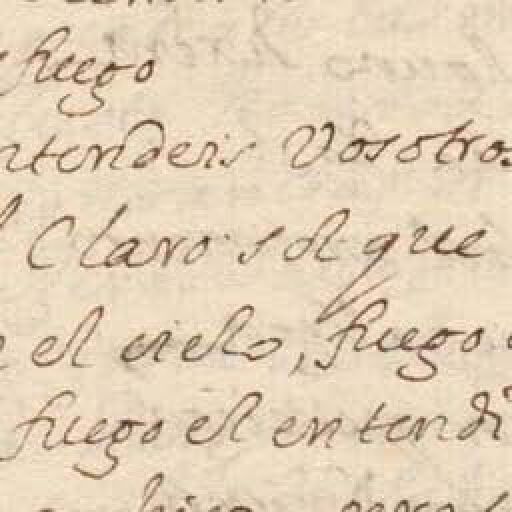 fuego
ntendeis Vosotros
Claro sol que
el cielo, fuego
fuego el entendi